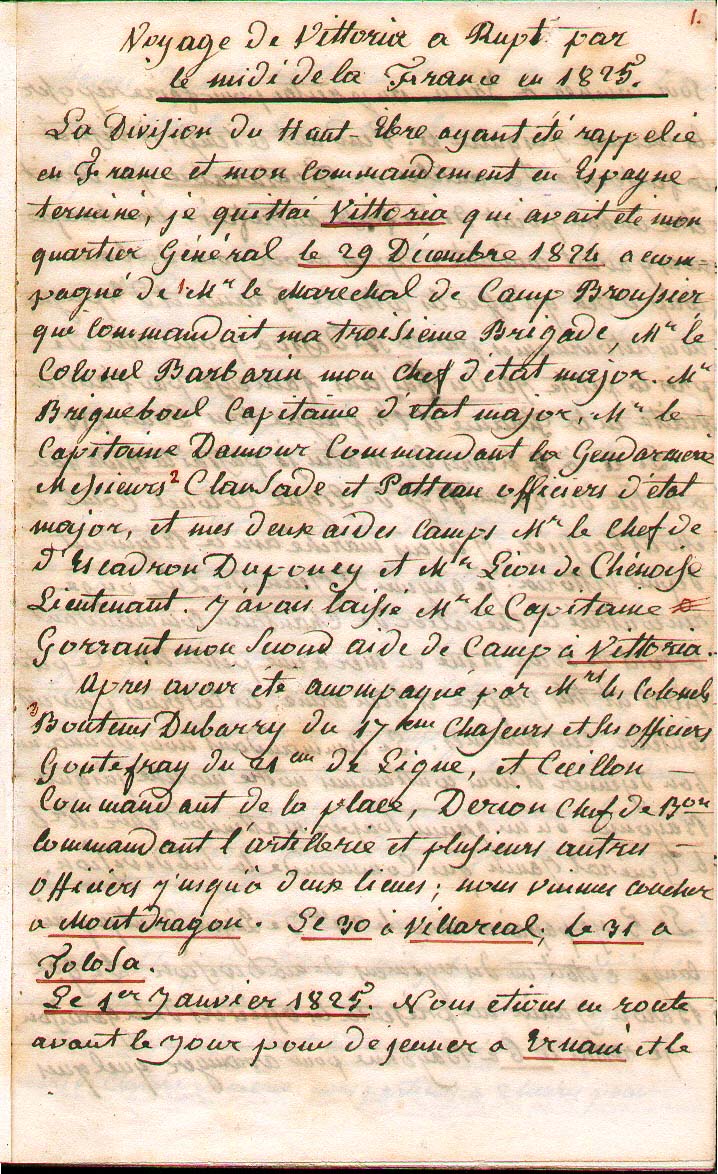 1.
Voyage de Vittoria a Rupt par
le midi de la France en 1825.
La Division du Haut-Ebre ayant été rappelée
en France et mon Commandement en Espagne
terminé, je quittai Vittoria qui avait été mon
quartier Général le 29 Décembre 1824 accom-
pagné de 1 Mr le Marechal de Camp Broussier
qui Commandait ma troisième Brigade, Mr le
Colonel Barbarin mon chef d'état major. Mr
Brigueboul Capitaine d'état major, Mr le
Capitaine Damour Commandant la Gendarmerie
Messieurs 2 Clausade et Potteau officiers d'état
major, et mes deux aides Camps Mr le Chef de
d'Escadron Dupouey et Mr Léon de Chénoise
Lieutenant. J'avais laissé Mr le Capitaine
Gorrant mon Second aide de Camp à Vittoria.
Après avoir été accompagné par Mrs les Colonels
3 Dubarry du 17 eme Chasseurs et ses officiers
Goutefray du 21 eme de Ligne, et Cuillon
Commandant de la place, Derion Chef de Bon
Commandant l'artillerie et plusieurs autres
officiers jusqu'à deux lieues; nous vinmes coucher
a Montdragon. Le 30 à Villareal, Le 31 a
Tolosa.
Le 1er Janvier 1825. Nous étions en route
avant le jour pour déjeuner a Ernani et le